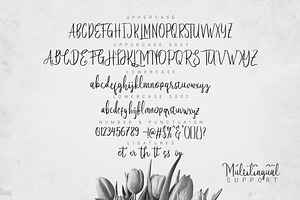 UPPERCASE
ABCDEFGHIJKLMNOPQRSTUVWXYZ
UPPERCASE SS01
ABCDEFGHIJKLMNOPQRSTUVWXYZ
LOWERCASE
abcdefghijklmnopqrstuvwxyz
LOWERCASE SS02
abcdefghijklmnopqrstuvwxyz
NUMBER & PUNCTUATION
LIGATURES
et er th tt ss og
Multilingual
SUPPORT